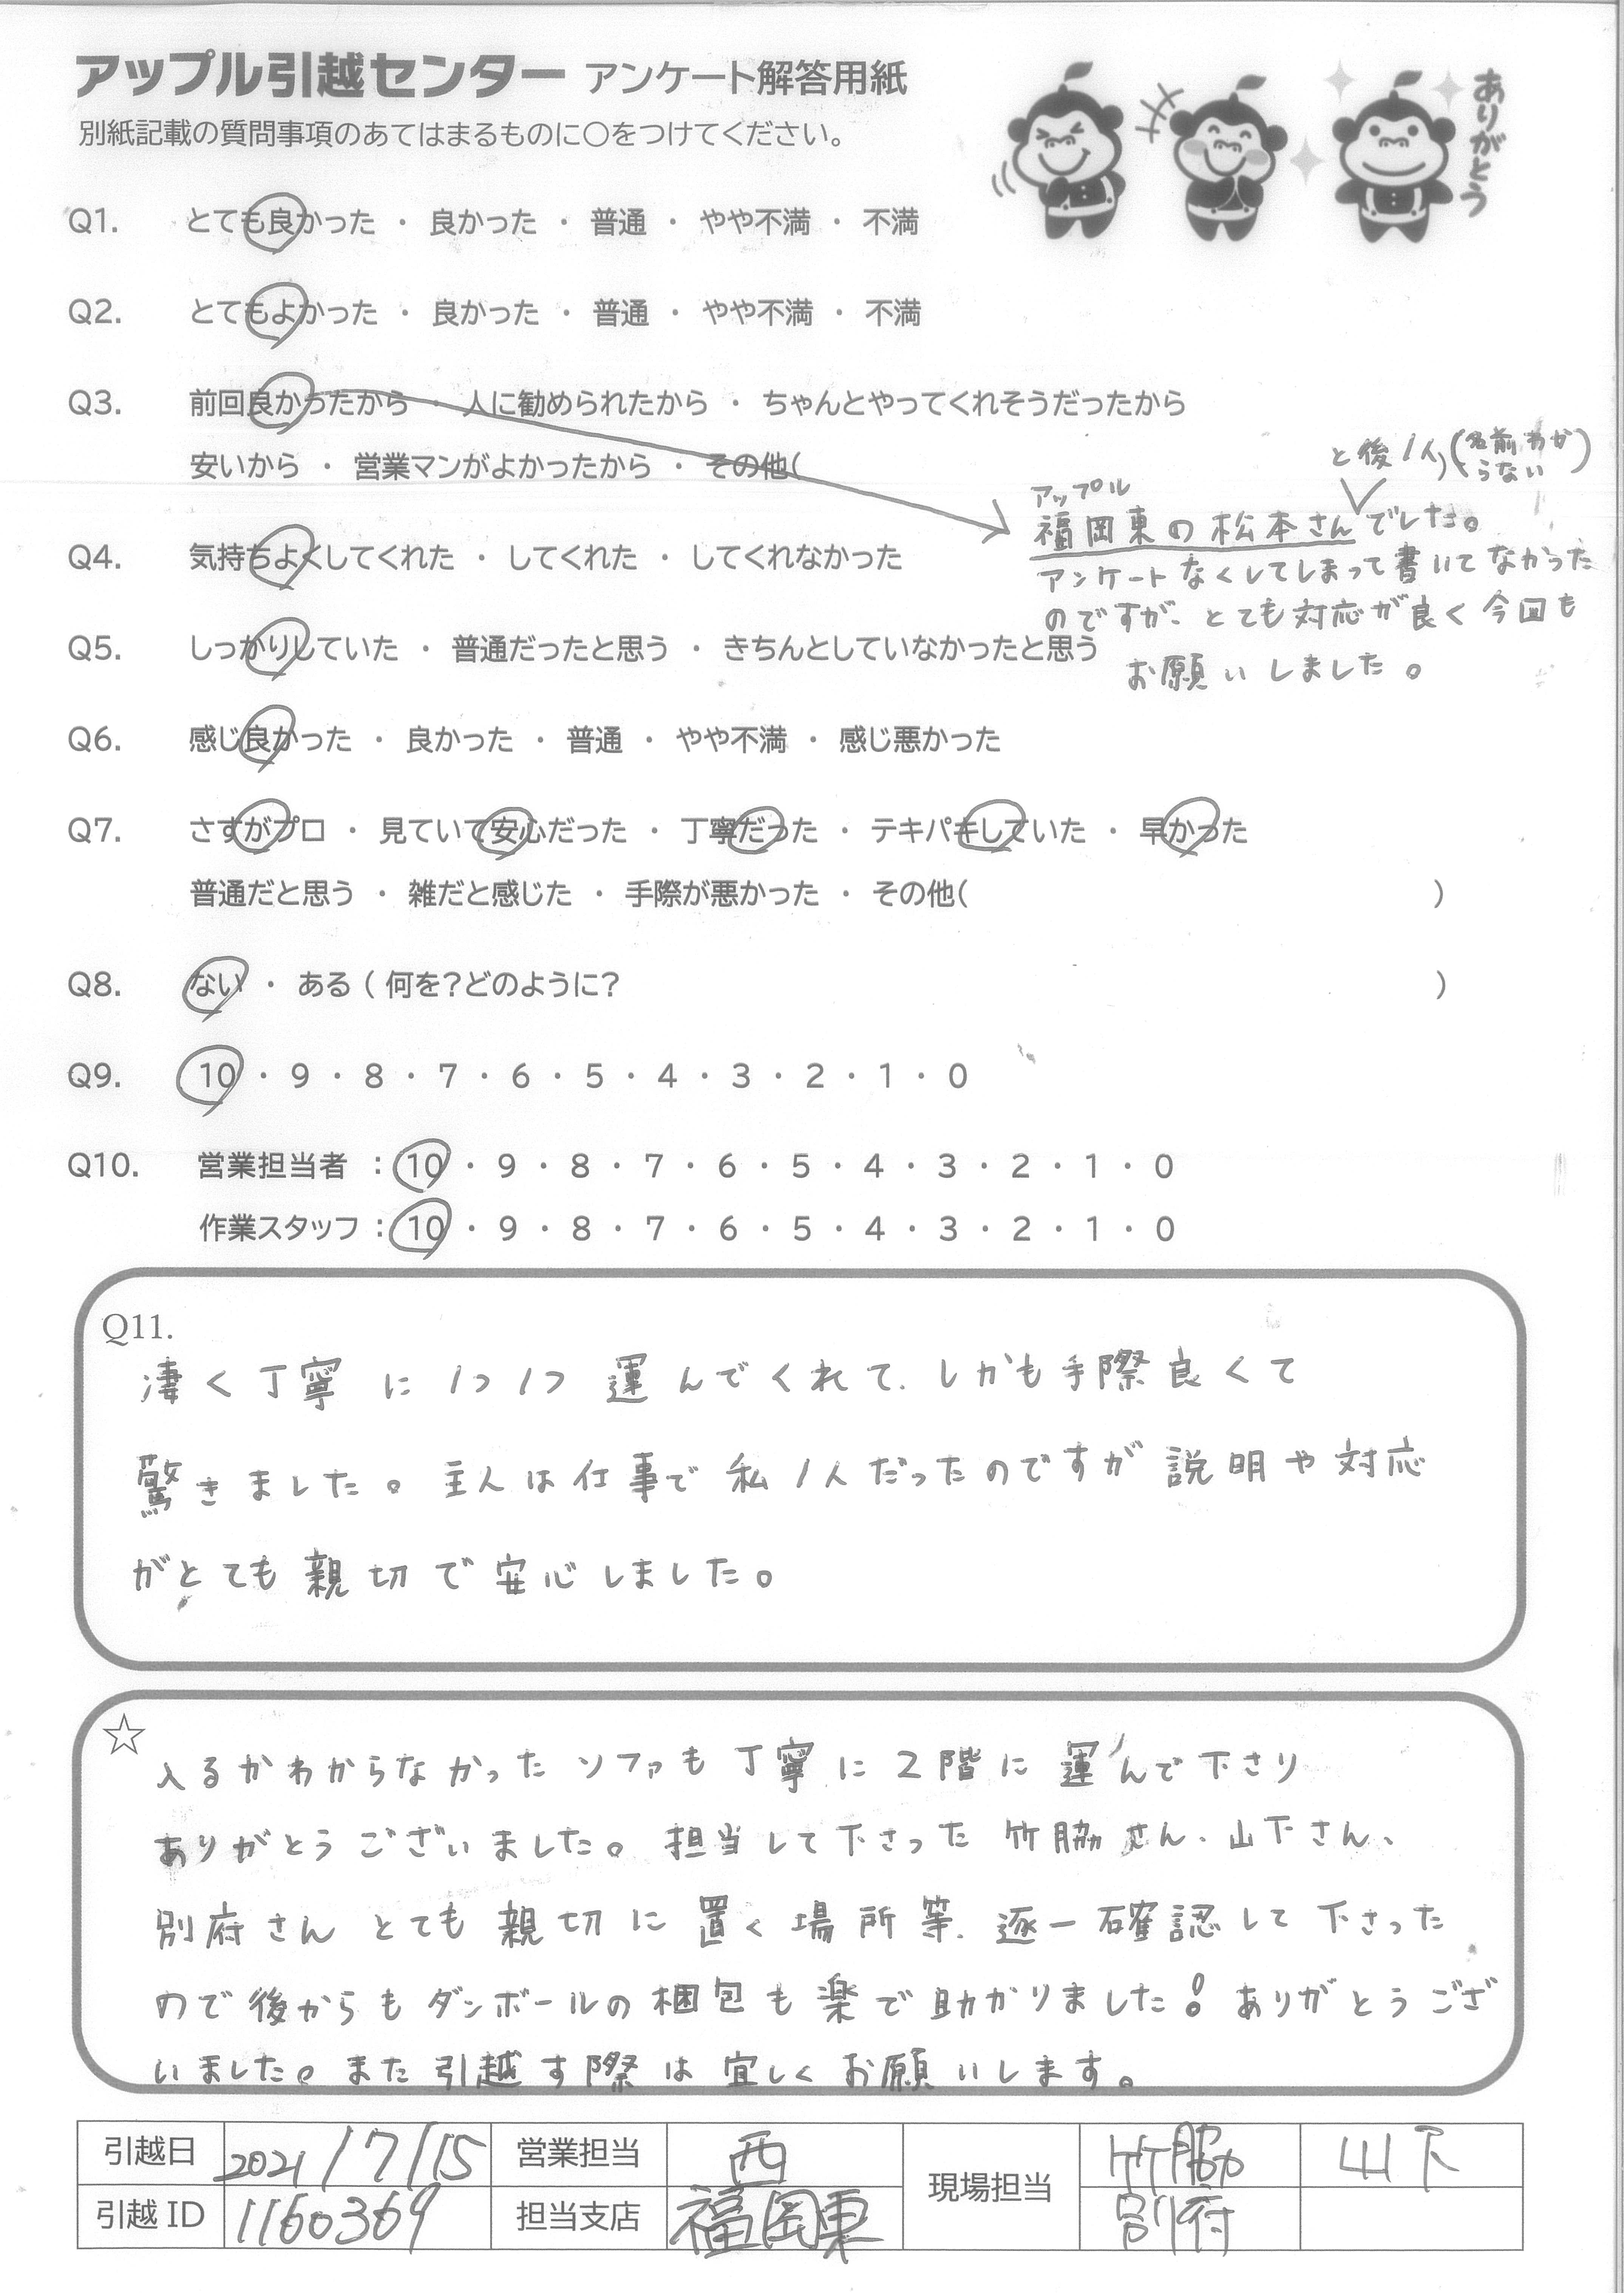 アップル引越センター アンケート解答用紙
別紙記載の質問事項のあてはまるものに○をつけてください。
ありがとう
Q1. とても良かった ・ 良かった ・ 普通 ・ やや不満 ・ 不満
Q2. とてもよかった ・ 良かった ・ 普通 ・ やや不満 ・ 不満
Q3. 前回良かったから ・ 人に勧められたから ・ ちゃんとやってくれそうだったから
安いから ・ 営業マンがよかったから ・ その他(
と後1人(名前わからない)
アップル
福岡東の松本さんでした。
アンケートなくしてしまって書いてなかった
のですが、とても対応が良く今回も
お願いしました。
Q4. 気持ちよくしてくれた ・ してくれた ・ してくれなかった
Q5. しっかりしていた ・ 普通だったと思う ・ きちんとしていなかったと思う
Q6. 感じ良かった ・ 良かった ・ 普通 ・ やや不満 ・ 感じ悪かった
Q7. さすがプロ ・ 見ていて安心だった ・ 丁寧だった ・ テキパキしていた ・ 早かった
普通だと思う ・ 雑だと感じた ・ 手際が悪かった ・ その他( )
Q8. ない ・ ある ( 何を?どのように? )
Q9. 10 ・ 9 ・ 8 ・ 7 ・ 6 ・ 5 ・ 4 ・ 3 ・ 2 ・ 1 ・ 0
Q10. 営業担当者 : 10 ・ 9 ・ 8 ・ 7 ・ 6 ・ 5 ・ 4 ・ 3 ・ 2 ・ 1 ・ 0
作業スタッフ : 10 ・ 9 ・ 8 ・ 7 ・ 6 ・ 5 ・ 4 ・ 3 ・ 2 ・ 1 ・ 0
Q11.
凄く丁寧に1つ1つ運んでくれて、しかも手際良くて
驚きました。主人は仕事で私1人だったのですが説明や対応
がとても親切で安心しました。
☆
入るかわからなかったソファも丁寧に2階に運んで下さり
ありがとうございました。担当して下さった竹脇さん、山下さん、
別府さんとても親切に置く場所等、逐一確認して下さった
ので後からもダンボールの梱包も楽で助かりました!ありがとうござ
いました。また引越す際は宜しくお願いします。
引越日 2021/7/15 営業担当 西 現場担当 竹脇 山下
引越ID 1160369 担当支店 福岡東 別府